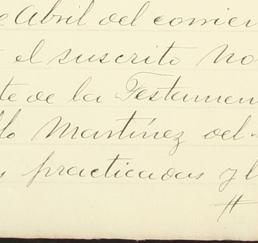 e Abril del corrien
el suscrito No
te de la Testamen
lo Martínez del
s practicadas y l
#